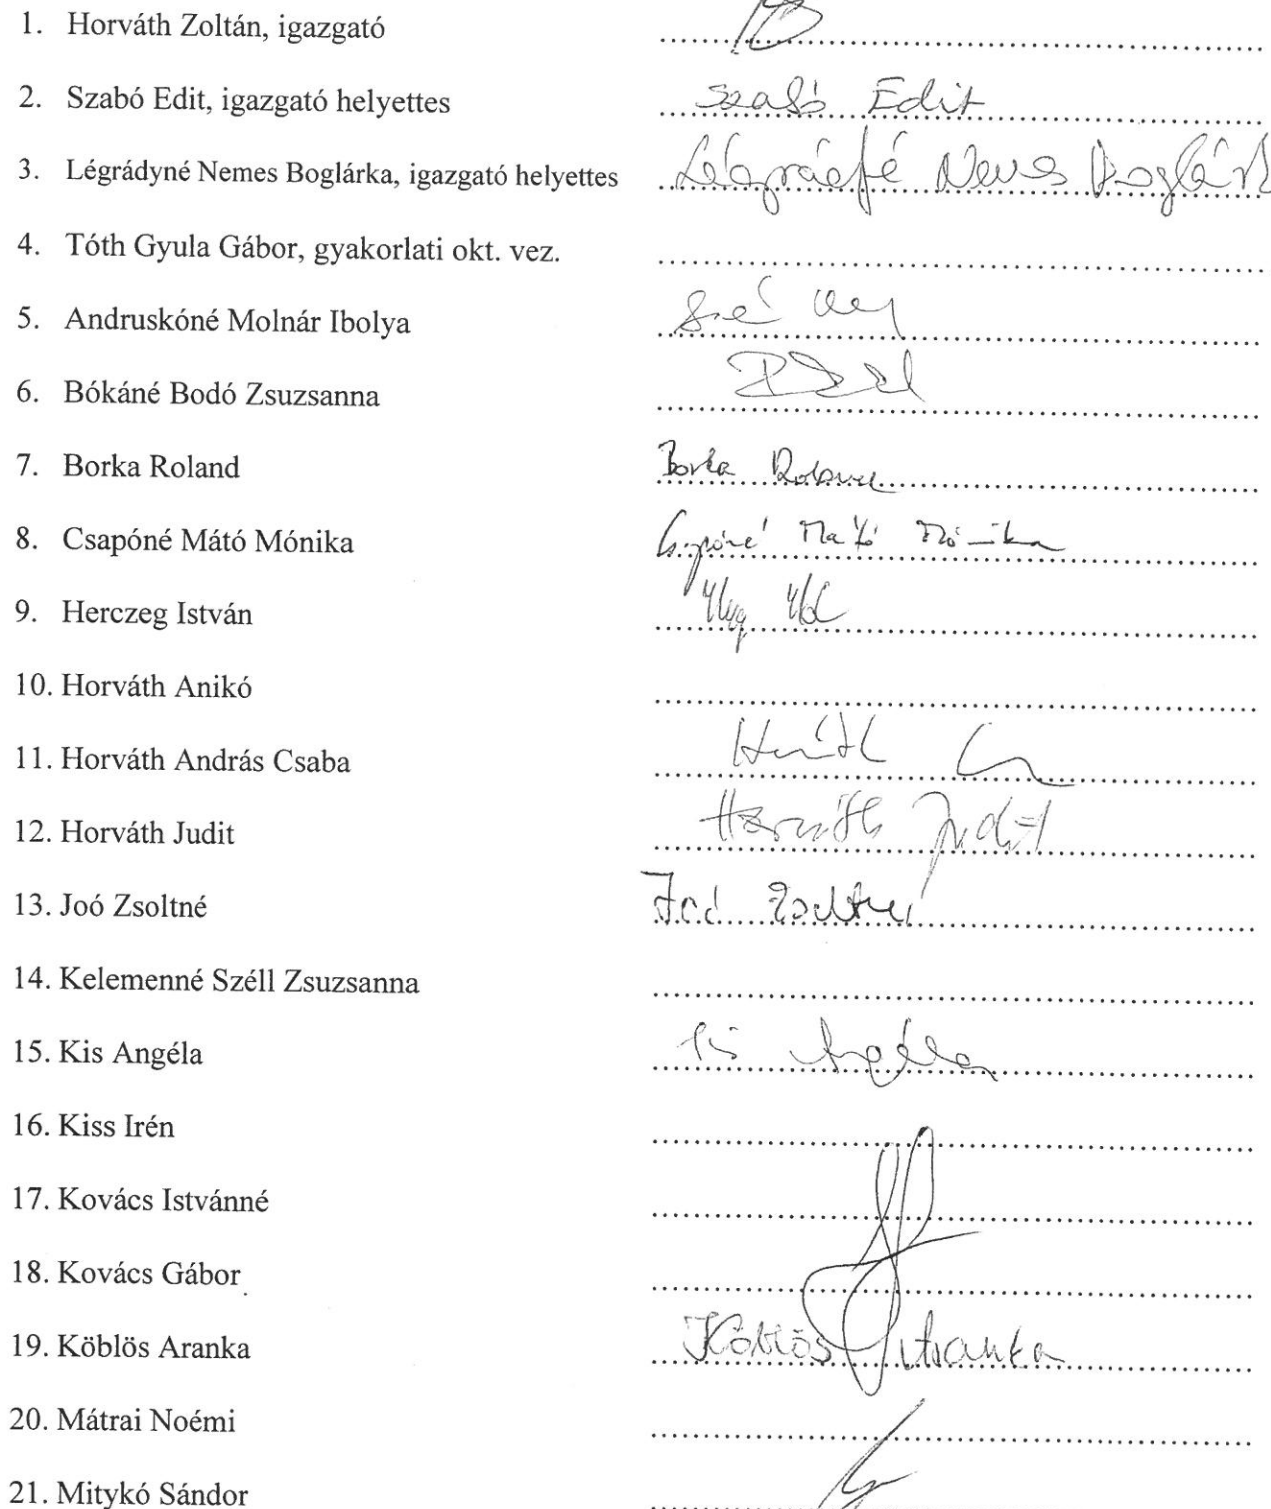 1. Horváth Zoltán, igazgató
2. Szabó Edit, igazgató helyettes Szabó Edit
3. Légrádyné Nemes Boglárka, igazgató helyettes
4. Tóth Gyula Gábor, gyakorlati okt. vez.
5. Andruskóné Molnár Ibolya
6. Bókáné Bodó Zsuzsanna
7. Borka Roland Borka Roland
8. Csapóné Mátó Mónika Csapóné Mátó Mónika
9. Herczeg István
10. Horváth Anikó
11. Horváth András Csaba Horváth
12. Horváth Judit Horváth Judit
13. Joó Zsoltné Joó Zsoltné
14. Kelemenné Széll Zsuzsanna
15. Kis Angéla Kis Angéla
16. Kiss Irén
17. Kovács Istvánné
18. Kovács Gábor
19. Köblös Aranka Köblös Aranka
20. Mátrai Noémi
21. Mitykó Sándor